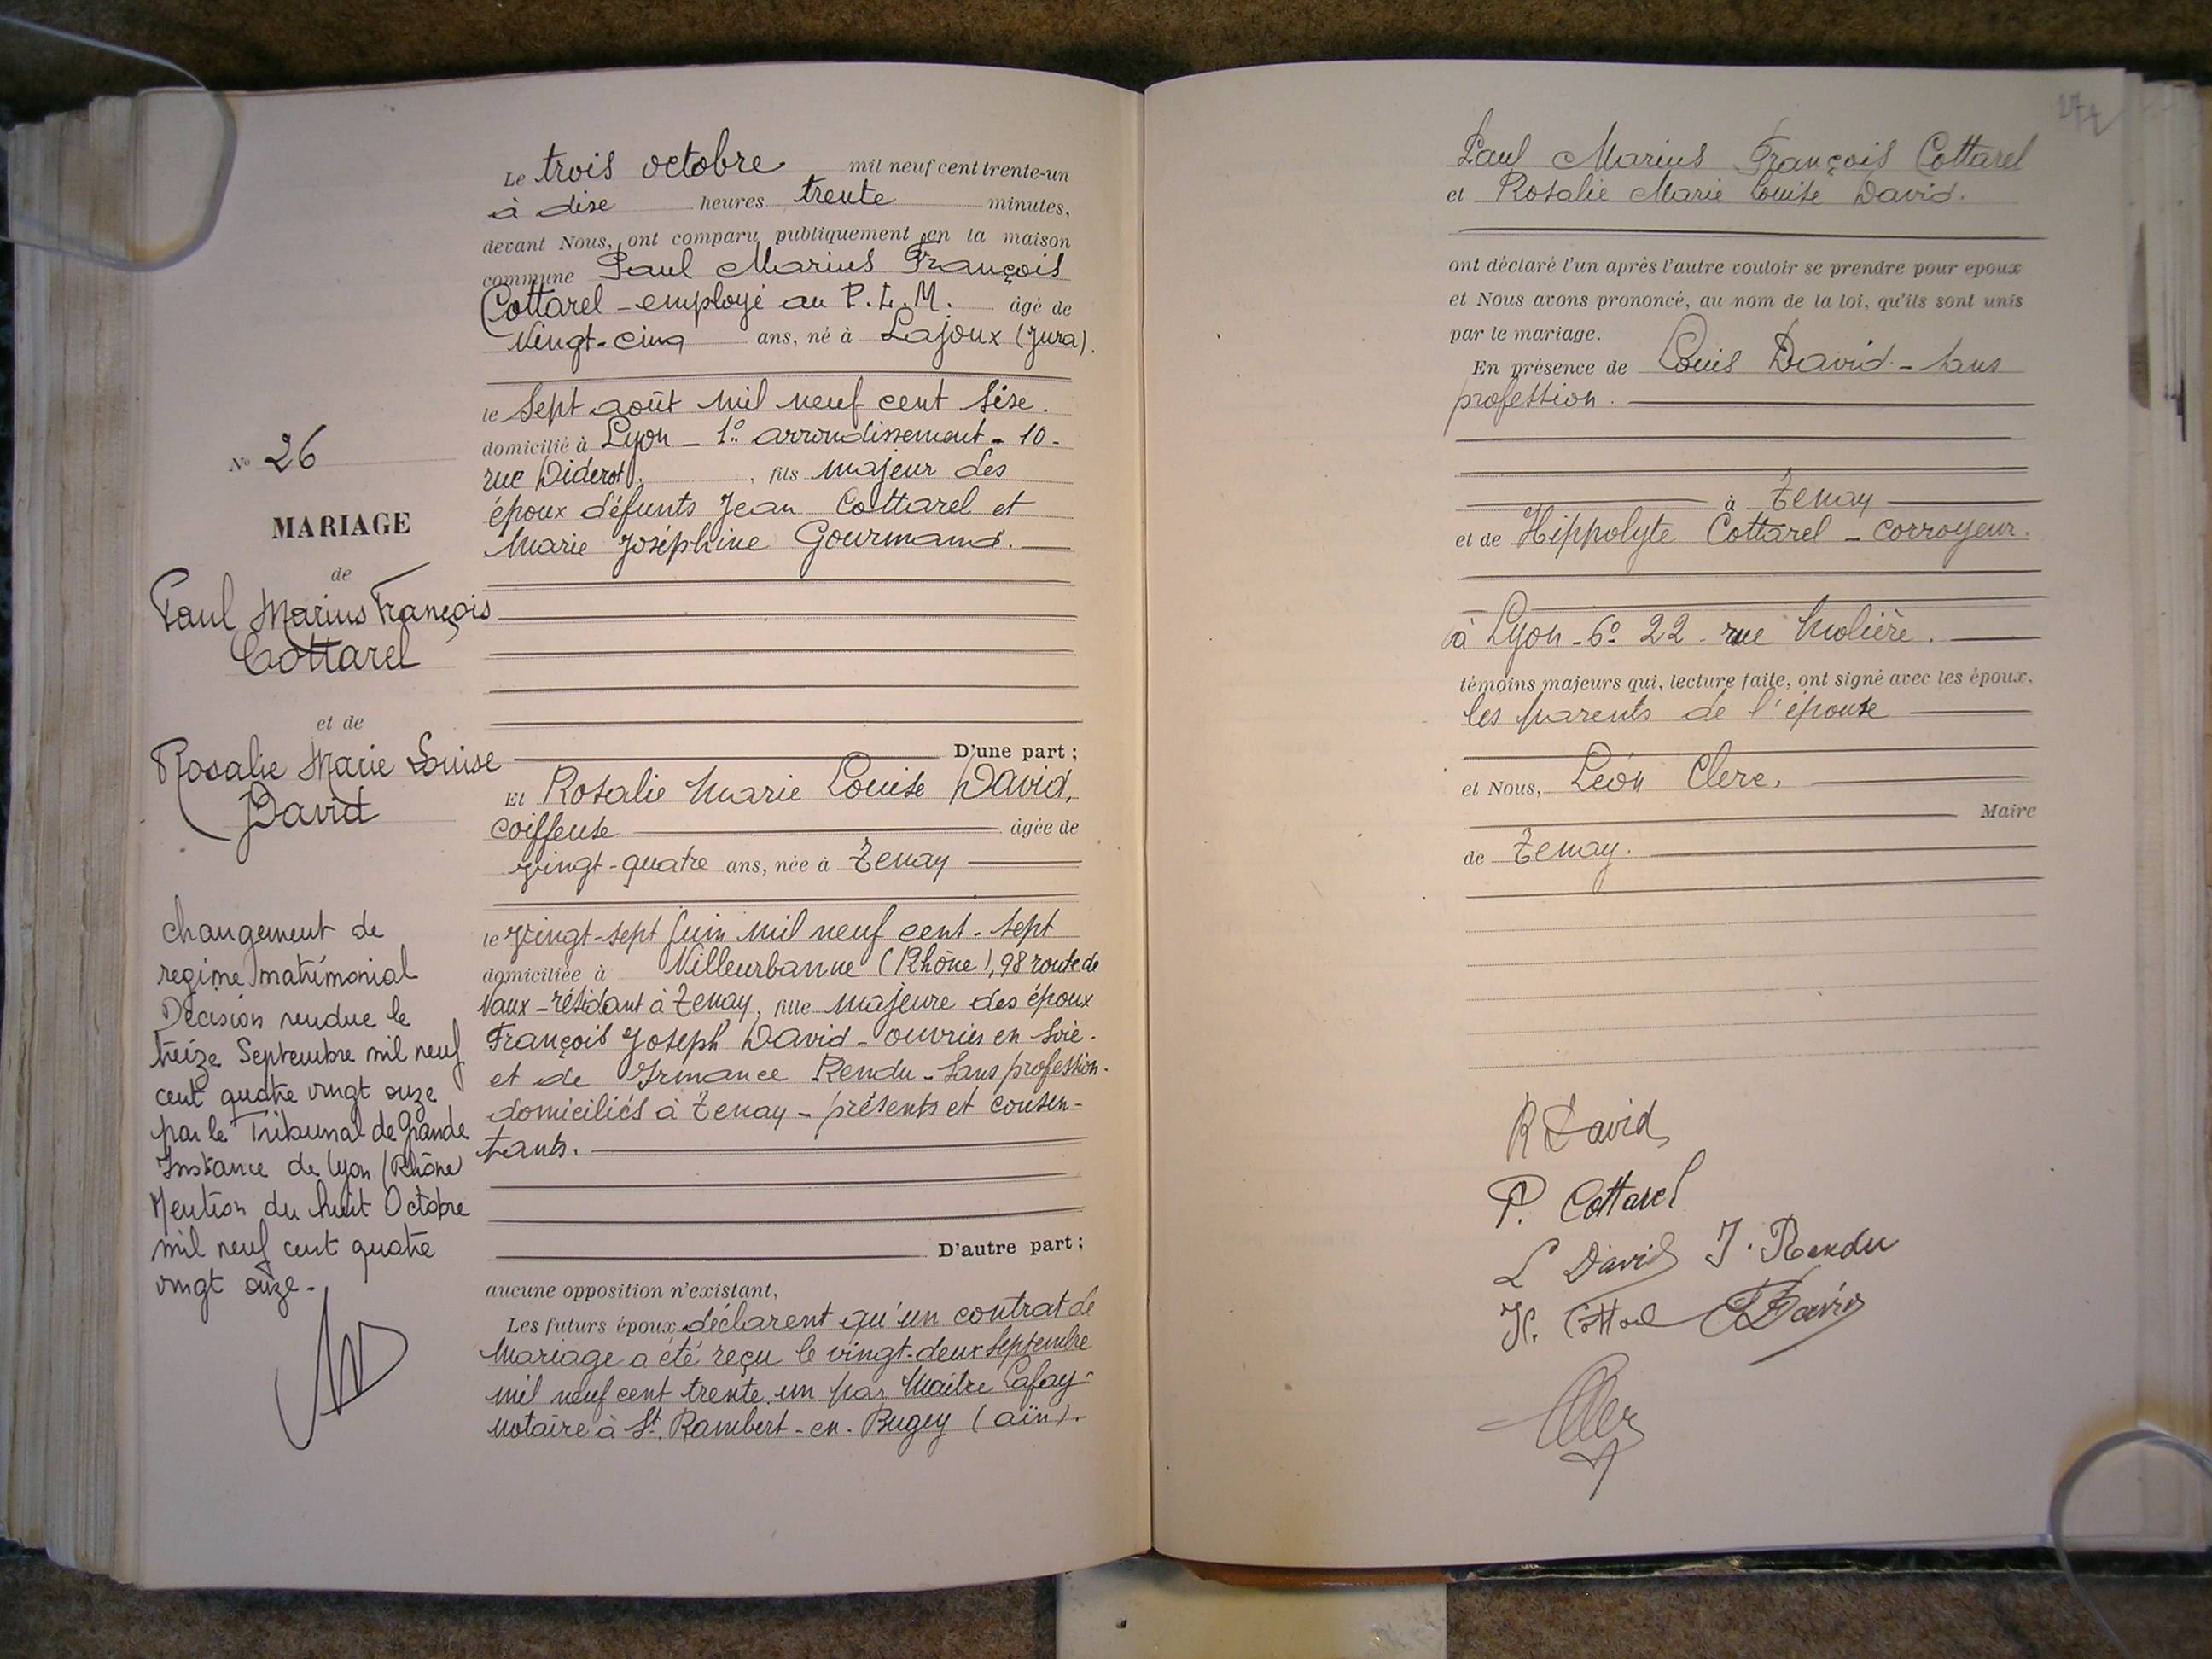 N° 26
MARIAGE
de
Paul Marius François
Cottarel
et de
Rosalie Marie Louise
David
changement de
regime matrimonial
Décision rendue le
treize Septembre mil neuf
cent quatre vingt onze
par le Tribunal de Grande
Instance de Lyon (Rhône)
Mention du huit Octobre
mil neuf cent quatre
vingt onze -
Le trois octobre mil neuf cent trente-un
à dixe heures trente minutes,
devant Nous, ont comparu publiquement en la maison
commune Paul Marius François
Cottarel - employé au P.L.M. âgé de
vingt-cinq ans, né à Lajoux (Jura).
le sept août mil neuf cent sixe.
domicilié à Lyon - 1° arrondissement - 10 -
rue Diderot. , fils majeur des
époux défunts Jean Cottarel et
Marie Joséphine Gourmand.
D'une part ;
Et Rosalie Marie Louise David,
coiffeuse âgée de
vingt-quatre ans, née à Tenay
le vingt-sept juin mil neuf cent-sept
domiciliée à Villeurbanne (Rhône), 98 route de
Vaux - résidant à Tenay, fille majeure des époux
François Joseph David - ouvrier en soie -
et de Irmance Rendu - sans profession -
domiciliés à Tenay - présents et consen-
tants.
D'autre part ;
aucune opposition n'existant,
Les futurs époux déclarent qu'un contrat de
mariage a été reçu le vingt-deux septembre
mil neuf cent trente un par Maître Lafay -
notaire à St. Rambert-en-Bugey (ain).
Paul Marius François Cottarel
et Rosalie Marie Louise David.
ont déclaré l'un après l'autre vouloir se prendre pour epoux
et Nous avons prononcé, au nom de la loi, qu'ils sont unis
par le mariage.
En présence de Louis David - sans
profession.
à Tenay
et de Hippolyte Cottarel - corroyeur.
à Lyon - 6° 22 rue Molière.
témoins majeurs qui, lecture faite, ont signé avec les époux,
les parents de l'épouse
et Nous, Léon Clerc,
Maire
de Tenay.
R David
P. Cottarel
L David I. Rendu
H. Cottarel David